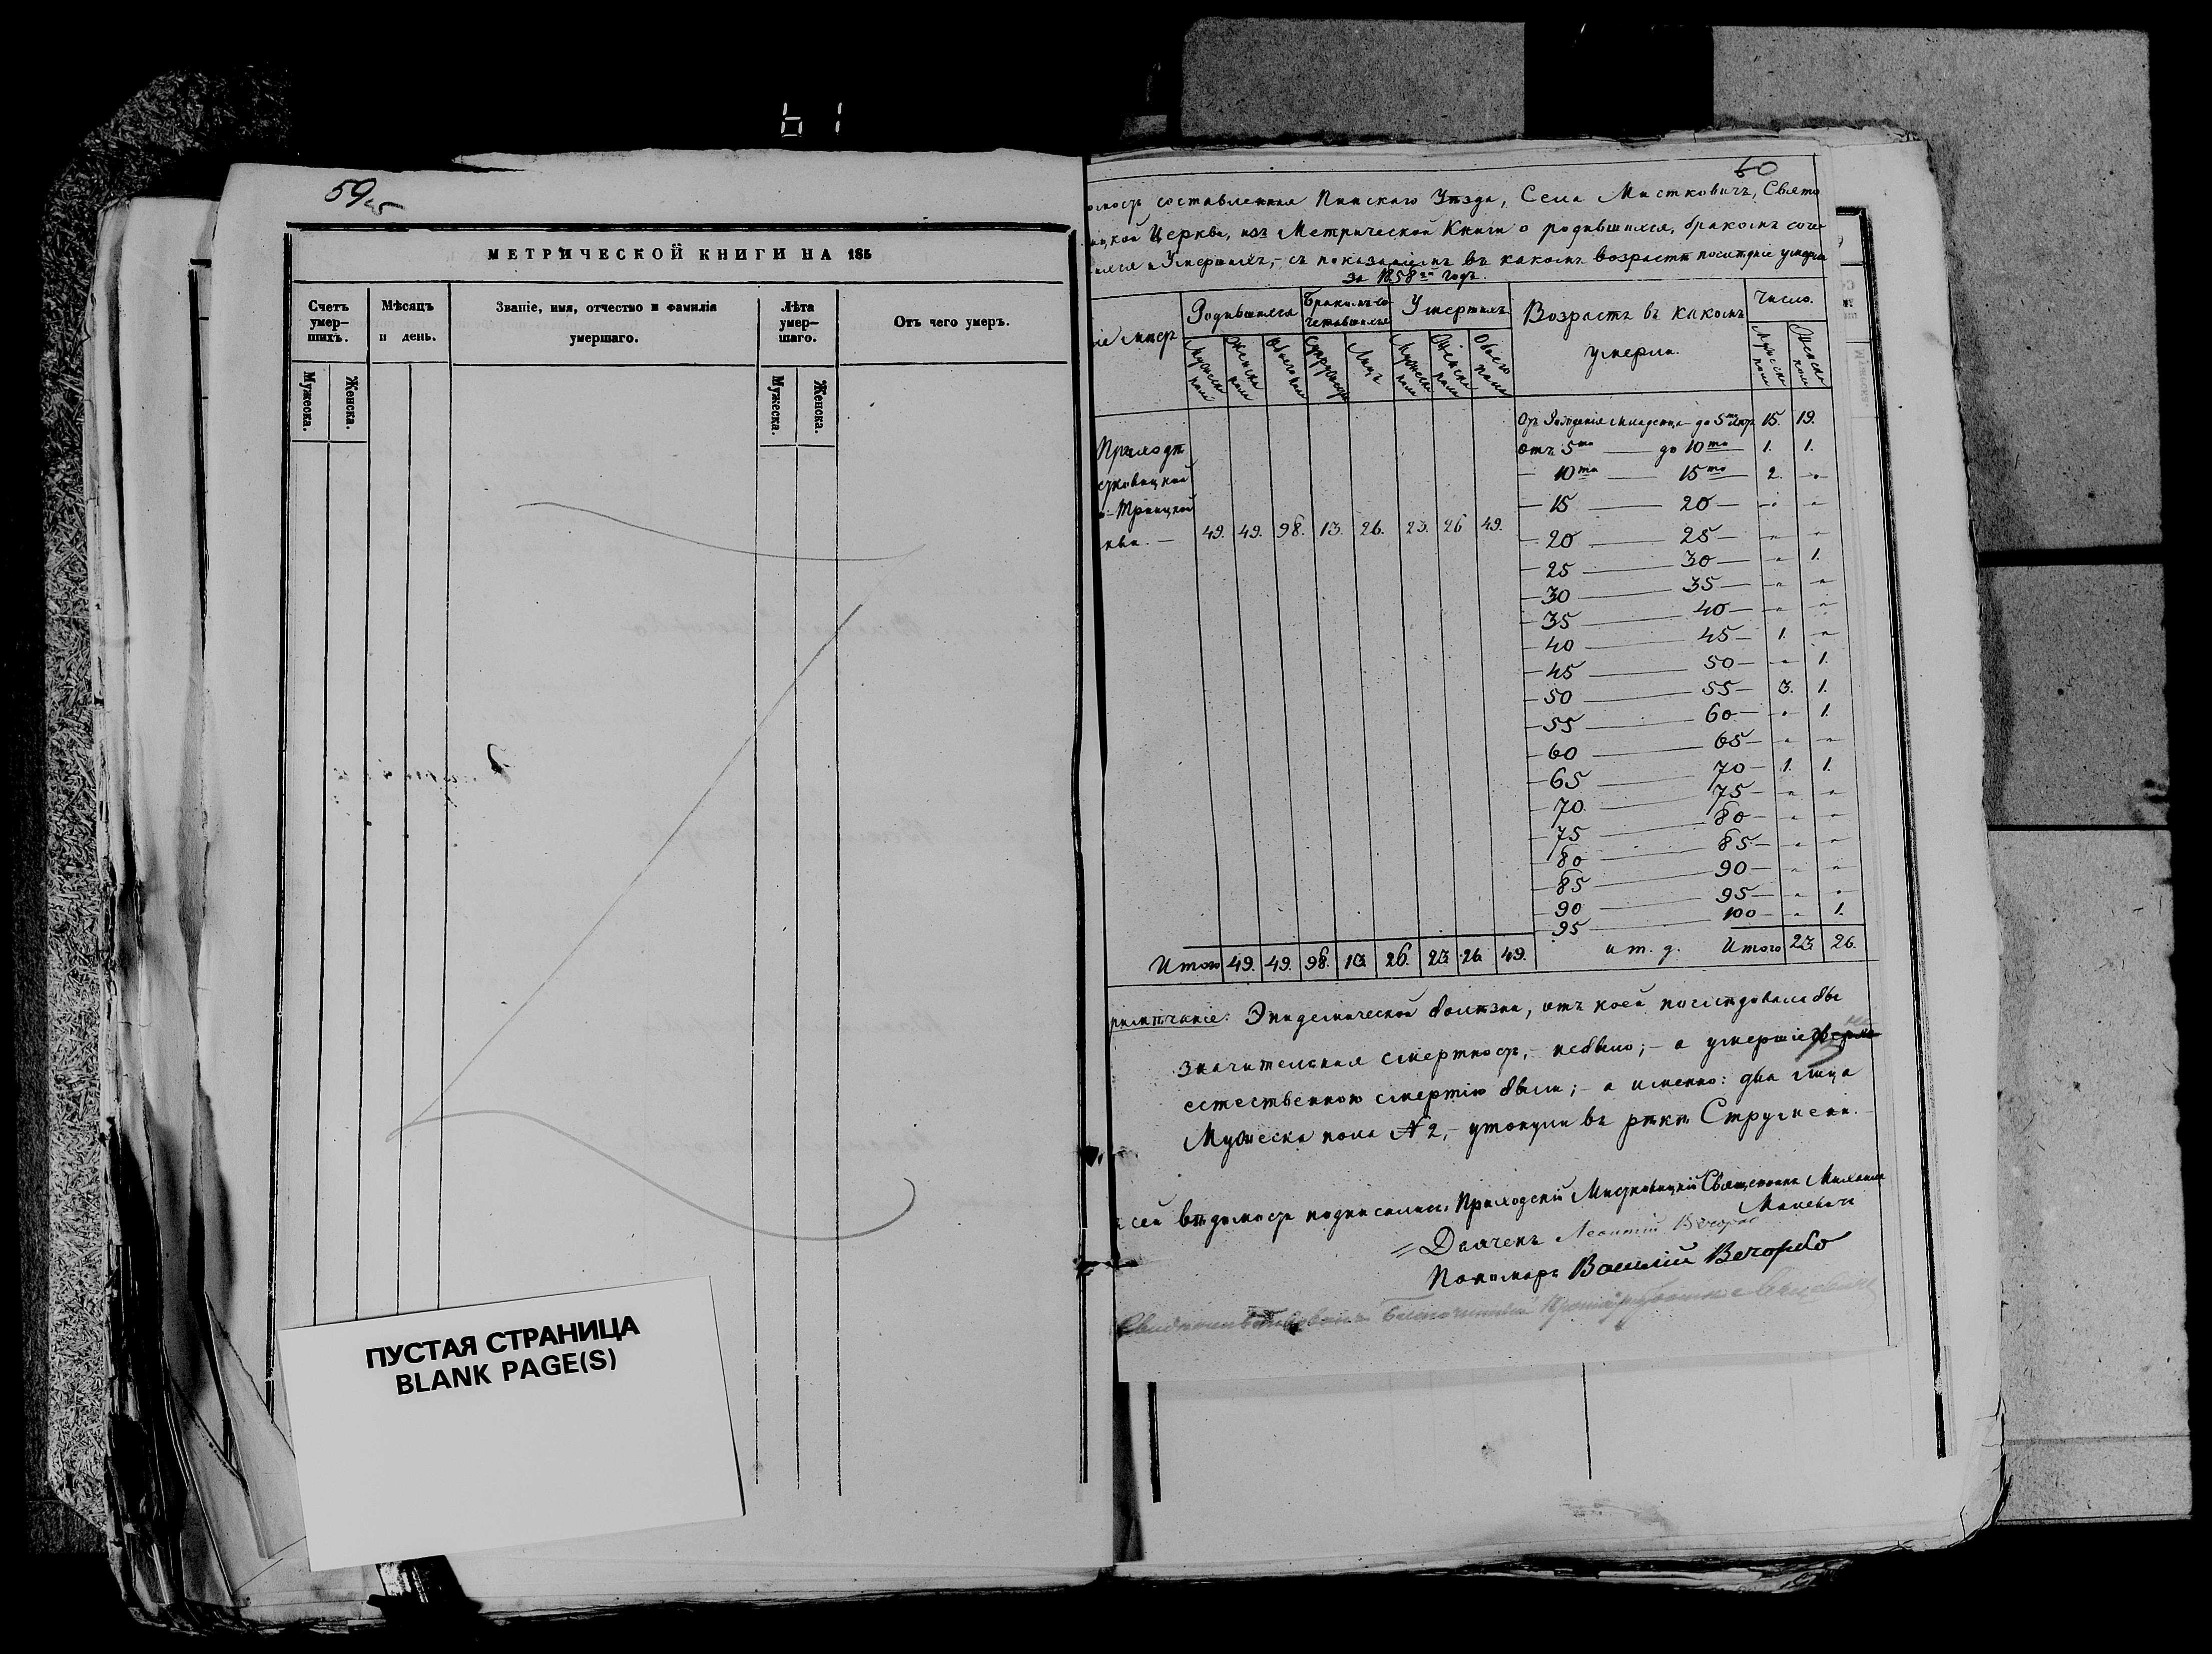 61
59
МЕТРИЧЕСКОЙ КНИГИ НА 185
Счетъ умер-шихъ.
Мѣсяцъ и день.
Званіе, имя, отчество и фамилія умершаго.
Лѣта умер-шаго.
Отъ чего умеръ.
Мужеска.
Женска.
Мужеска.
Женска.
ПУСТАЯ СТРАНИЦА
BLANK PAGE(S)
60
составленная Пинскаго Уѣзда, Села Мистковичъ, Свято
Церкви, изъ Метрической Книги о родившихся, бракомъ соче
Умершихъ, съ показаніемъ въ какомъ возрастѣ послѣдніе умерли
за 1858й годъ.
Родившихся
Бракомъ со-четавшихся
Умершихъ
Возрастъ въ какомъ умерли.
Число.
Мужеска пола
Женска пола
Обоего пола
Супружествъ
Лицъ
Мужеска пола
Женска пола
Обоего пола
Мужеска пола
Женска пола
Отъ Рожденія младенца до 5ти лѣтъ 15. 19.
Отъ 5ти — до 10ти 1. 1.
— 10ти — 15ти 2. "
— 15 — 20 — " "
— 20 — 25 — " "
— 25 — 30 — " 1.
— 30 — 35 — " "
— 35 — 40 — " "
— 40 — 45 — 1. "
— 45 — 50 — " 1.
— 50 — 55 — 3. 1.
— 55 — 60 — " 1.
— 60 — 65 — " "
— 65 — 70 — 1. 1.
— 70 — 75 — " "
— 75 — 80 — " "
— 80 — 85 — " "
— 85 — 90 — " "
— 90 — 95 — " "
— 95 — 100 — " 1.
Приходѣ
стковицкой
Троицкой
кви. — 49. 49. 98. 13. 26. 23. 26 49.
Итого 49. 49. 98. 13 26. 23 26. 49. и т. д. Итого 23. 26.
римѣчаніе: Эпидемической болѣзни, отъ коей послѣдовала бы
значительная смертность, — небыло; — а умершіе
естественною смертію были; — а именно: два лица
Мужеска пола № 2, — утонули въ рѣкѣ Струмени.
сей вѣдомости подписались Приходскій Мистковицкій Священникъ Михаилъ
Маневичъ
Дьячекъ Леонтій
Пономарь Василій Вечорко